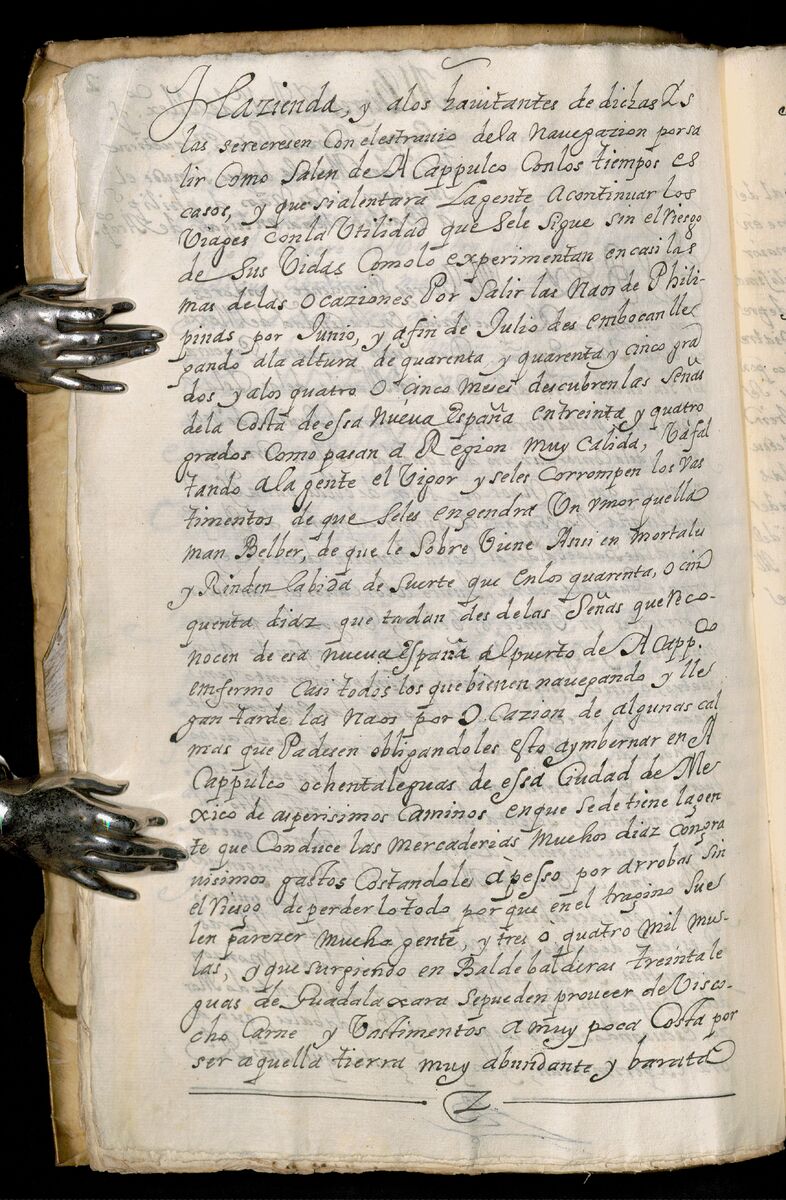 Hazienda, y alos havitantes de dichas Ys
las serecresen con elestravio dela navegazion por sa
lir como salen de Acappulco con los tiempos es
casos, y que sialentara la gente acontinuar los
Viages con la Utilidad que sele sigue sin el riesgo
de sus Vidas como lo experimentan en casi las
mas delas ocaziones Por salir las Naos de Phili-
pinas por Junio, y afin de Julio des embocan lle
gando ala altura de quarenta y quarenta y cinco gra
dos y alos quatro o cinco meses descubren las señas
dela Costa de essa Nueva España entreinta y quatro
grados como pasan a Region muy calida, Va fal
tando ala gente el Vigor y seles corrompen los vas
timentos de que seles engendra Un vmor que lla
man Belber, de que le sobre viene Ansi en mortalu
y Rinden la bida de suerte que en los quarenta, o cin
quenta diaz que tardan desde las señas que reco-
nocen de esa nueva España al puerto de Acapp.co
emfermo casi todos los que bienen navegando y lle
gan tarde las Naos por ocazion de algunas cal
mas que Padesen obligandoles esto aymbernar en A
Cappulco ochentaleguas de essa Ciudad de Me
xico de asperisimos caminos en que se detiene lagen
te que conduce las mercaderias muchos diaz congra
visimos gastos costandoles à pesso por arrobas sin
el riesgo de perderlo todo por que en el tragino sue
len parezer mucha gente, y tres o quatro mil mu
las, y que surgiendo en Baldebalderas treinta le
guas de Guadalaxara sepueden proveer de Visco-
cho Carne y Vastimentos a muy poca costa por
ser aquella tierra muy abundante y barata